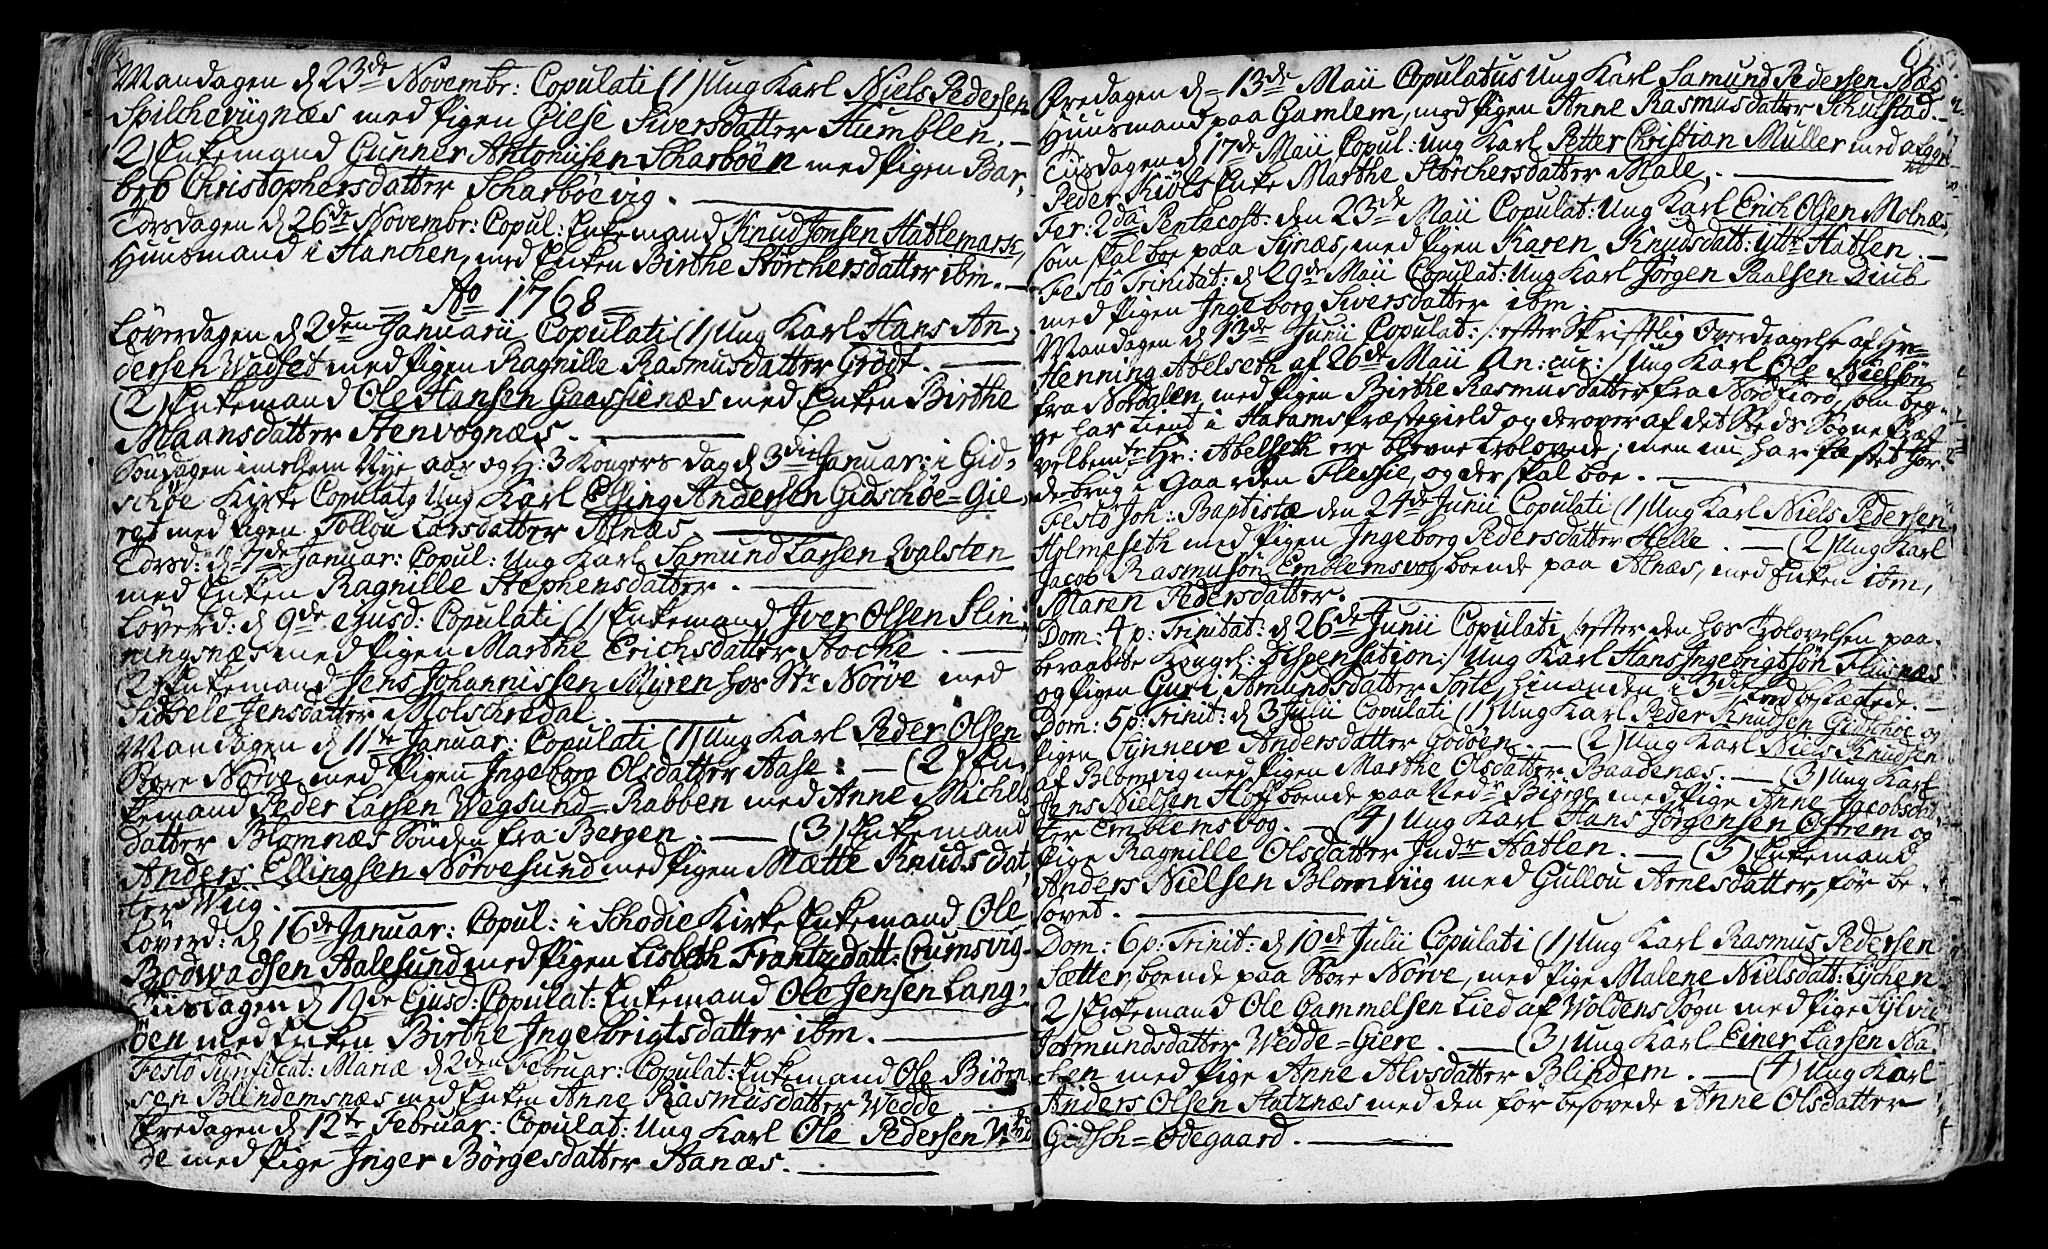 Mandagen d 23de Novembr: Copulati (1) Ung Karl Niels Pedersen
Spilchevügnæs med Pigen Giese Siversdatter Humblen. —
2) Enkemand Gunner Antonijsen Scharböen med Pigen Bar,
breb Christophersdatter Scharböevig. —
Torsdagen d 26de Novembr: Copul: Enkemand Knud Jonsen Hatlemark,
Huusmand i Hanchen, med Enken Birthe Störchersdatter ibm. —
Ao 1768
Löverdagen d 2den Januarii Copulati (1) Ung Karl Hans An,
dersen Wadset med Pigen Ragnille Rasmusdatter Grödt. —
(2) Enkemand Ole Hansen Gaassienæs med Enken Birthe
Maansdatter Stenvognæs. —
Söndagen imellem Nye aar og H: 3 Kongers dag d 3die Januar: i Gid,
schöe Kirke Copulatg Ung Karl Elling Andersen Gidschöe=Gie
ret med Pigen Tollou Larsdatter Alnæs —
Torsd: d 7de Januar: Copul: Ung Karl Samund Larsen Qvalsten
med Enken Ragnille Stephensdatter. —
Löverd: d 9de ejusd: Copulati (1) Enkemand Iver Olsen Slin,
ningsnæs med Pigen Marthe Erichsdatter Hoche. —
(2) Enkemand Jens Johannissen Myren hos Str Nörve med
Sidsele Jensdatter Molschredal. —
Mandagen d 11te Januar: Copulati (1) Ung Karl Peder Olsen
Store Nörve med Pigen Ingeborg Olsdatter Aase: — (2) En,
kemand Peder Larsen Wegsund=Rabben med Anne Michels
datter Blomnæs Sönden fra Bergen. — (3) Enkemand
Anders Ellingsen Nörvesund med Pigen Mætte Knudsdat,
ter Wiig. —
Löverd: d 16de Januar: Copul: i Schodie Kirke Enkemand Ole
Bodwadsen Aalesund med Pigen Lisbeth Frantzdatt: Crumsvig
Tiisdagen d 19de Ejusd: Copulat: Enkemand Ole Jensen Lang,
öen med Enken Birthe Ingebrigtsdatter ibm. —
Festo Purificat: Mariæ d 2den Februar: Copulat: Enkemand Ole Biörn
sen Blindemsnæs med Enken Anne Rasmusdatter Wedde —
Fredagen d 12te Februar: Copulat: Ung Karl Ole Pedersen
de med Pige Inger Börgesdatter Hanæs. —
Fredagen d 13de Maii Copulatus Ung Karl Samund Pedersen Næs
Huusmand paa Gamlem, med Pigen Anne Rasmusdatter Schulstad. —
Tiisdagen d 17de Maii Copul: Ung Karl Petter Christian Muller med afgn
Peder Kiöls Enke Marthe Störchersdatter Male. —
Fer: 2da Pentecost: den 23de Maii Copulat: Ung Karl Erich Olsen Molnæs,
som skal boe paa Synæs, med Pigen Karen Knudsdatt: ytt Hatlen. —
Festo Trinitat: d 29de Maii Copulat: Ung Karl Jörgen Paalsen Diub
med Pigen Ingeborg Siversdatter ibm. —
Mandagen d 13de Junii Copulat: /: efter Skriftlig Overdragelse af Hr=
Henning Abelseth af 26de Maii An: cur: / Ung Karl Ole Nielsön
fra Nordalen, med Pigen Birthe Rasmusdatter fra Nordfiord, som beg,
ge har tient i Harams Præstegield og derover af det Steds Sogne Præst
velbemte Hr: Abelseth ere blevne trolovede; men nu har fæstet Jor,
debrug i Gaarden Flessie, og der skal boe. —
Festo Joh: Baptistæ den 24de Junii Copulati (1) Ung Karl Niels Pedersen
Holmeseth med Pigen Ingeborg Pedersdatter Helle. — (2) Ung Karl
Jacob Rasmusön Emblemsvog, boende paa Alnæs, med Enken ibm,
Maren Pedersdatter. —
Dom: 4 p: Trinitat: d 26de Junii Copulati /: efter den hos Trolovelsen paa,
beraabte Kongel: Dispensation: / Ung Karl Hans Ingebrigtsön Fluisnæs
og Pigen Guri Amundsdatter Sorte, hinanden i 3die Led beslægtede. —
Dom: 5 p: Trinit: d 3 Julii Copulati (1) Ung Karl Peder Knudsen Gidschöe og
Pigen Synneve Andersdatter Godöen. — (2) Ung Karl Niels Knudsen
af Blomvig med Pigen Marthe Olsdatter Baadenæs. — (3) Ung Karl
Jens Nielsen Hoff boende paa Nedr Biorge med Pige Anne Jacobsdat,
ter Emblemsvog. — (4) Ung Karl Hans Jörgensen Ostrem og
Pige Ragnille Olsdatter Indr Hatlen. — (5) Enkemand
Anders Nielsen Blomvüg med Gullou Arnesdatter, för be,
sovet. —
Dom: 6 p: Trinit: d 10de Julii Copulati (1) Ung Karl Rasmus Pedersen
Sætter, boende paa Store Nörve, med Pige Malene Nielsdatt: Lychen
2) Enkemand Ole Gammelsen Lied af Woldens Sogn med Pige Sylvi
Amundsdatter Wedde=Giere. — (3) Ung Karl Einer Larsen Ha,
chen med Pige Anne Alvsdatter Blindem. — (4) Ung Karl
Anders Olsen Statznæs med den for besovede Anne Olsdatter
Gidsch=Ödegaard. —